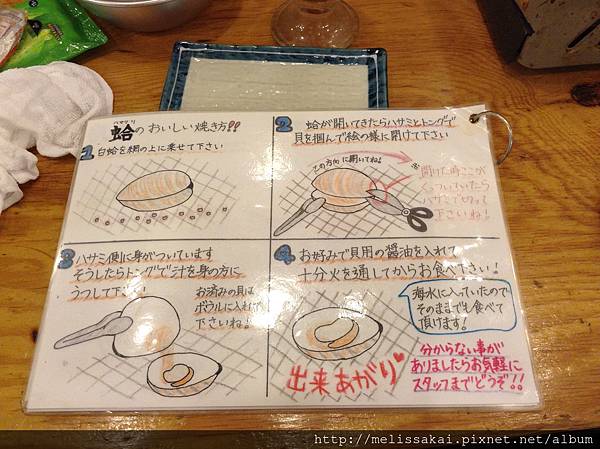 ハマグリ
蛤のおいしい焼き方!!
1 白蛤を網の上に乗せて下さい
2 蛤が開いてきたらハサミとトングで
貝を掴んで絵の様に開けて下さい
この方向に開いてね!
※開けた時ここが
くっついていたら
ハサミで切って
下さいね!
3 ハサミ側に身がついています
そうしたらトングで汁を身の方に
うつして下さい
お済みの貝は
ボウルに入れて
下さいね!
4 お好みで貝用の醤油を入れて
十分火を通してからお食べ下さい!
海水に入っていたので
そのままでも食べて
頂けます!
出来あがり
分からない事が
ありましたらお気軽に
スタッフまでどうぞ!!
http://melissakai.pixnet.net/album